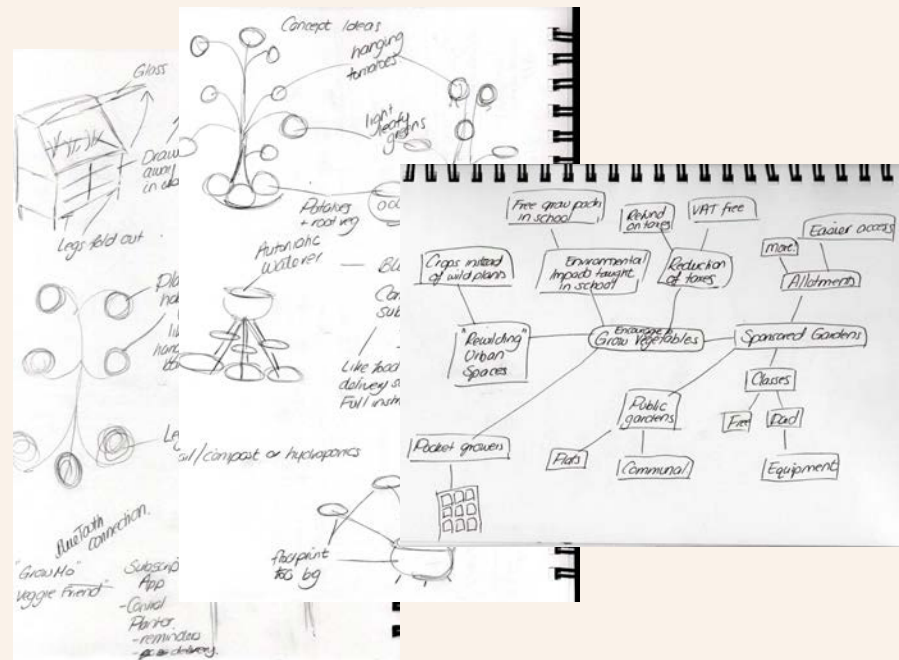 Glass
Draw
away
in
Legs fold out
BlueTooth
connection.
"GrowMo
Veggie Friend"
Subscrip
App
-Control
Planter
-reminders
delivery.
Concept Ideas
hanging
tomatoes
light
leafy
greens
Potatoes
+ root veg
Automatic
Waterer
Like food
delivery
Full inst
/compost or hydroponics
footprint
too big
Free grow packs
in school
Refund
on taxes
VAT free
Easier access
more.
Crops instead
of wild plants
Environmental
Impacts taught
in school
Reduction
of taxes
Allotments
"Rewilding"
Urban
Spaces
Encourage
Grow Vegetables
Sponsored Gardens
Classes
Free
Paid
Equipment
Public
gardens
Flats
Communal
Pocket growers